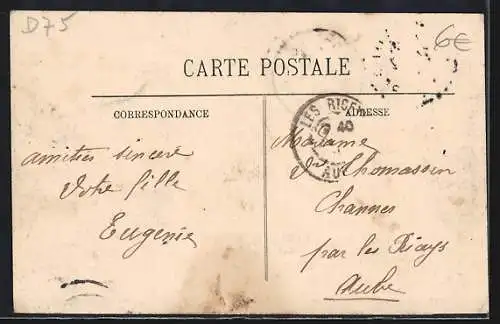 D75
6€
CARTE POSTALE
CORRESPONDANCE
ADRESSE
LES RICEY
40
AU
amitiés sincère
Votre fille
Eugenie
Madame
Thomassin
Channes
par les Riceys
Aube